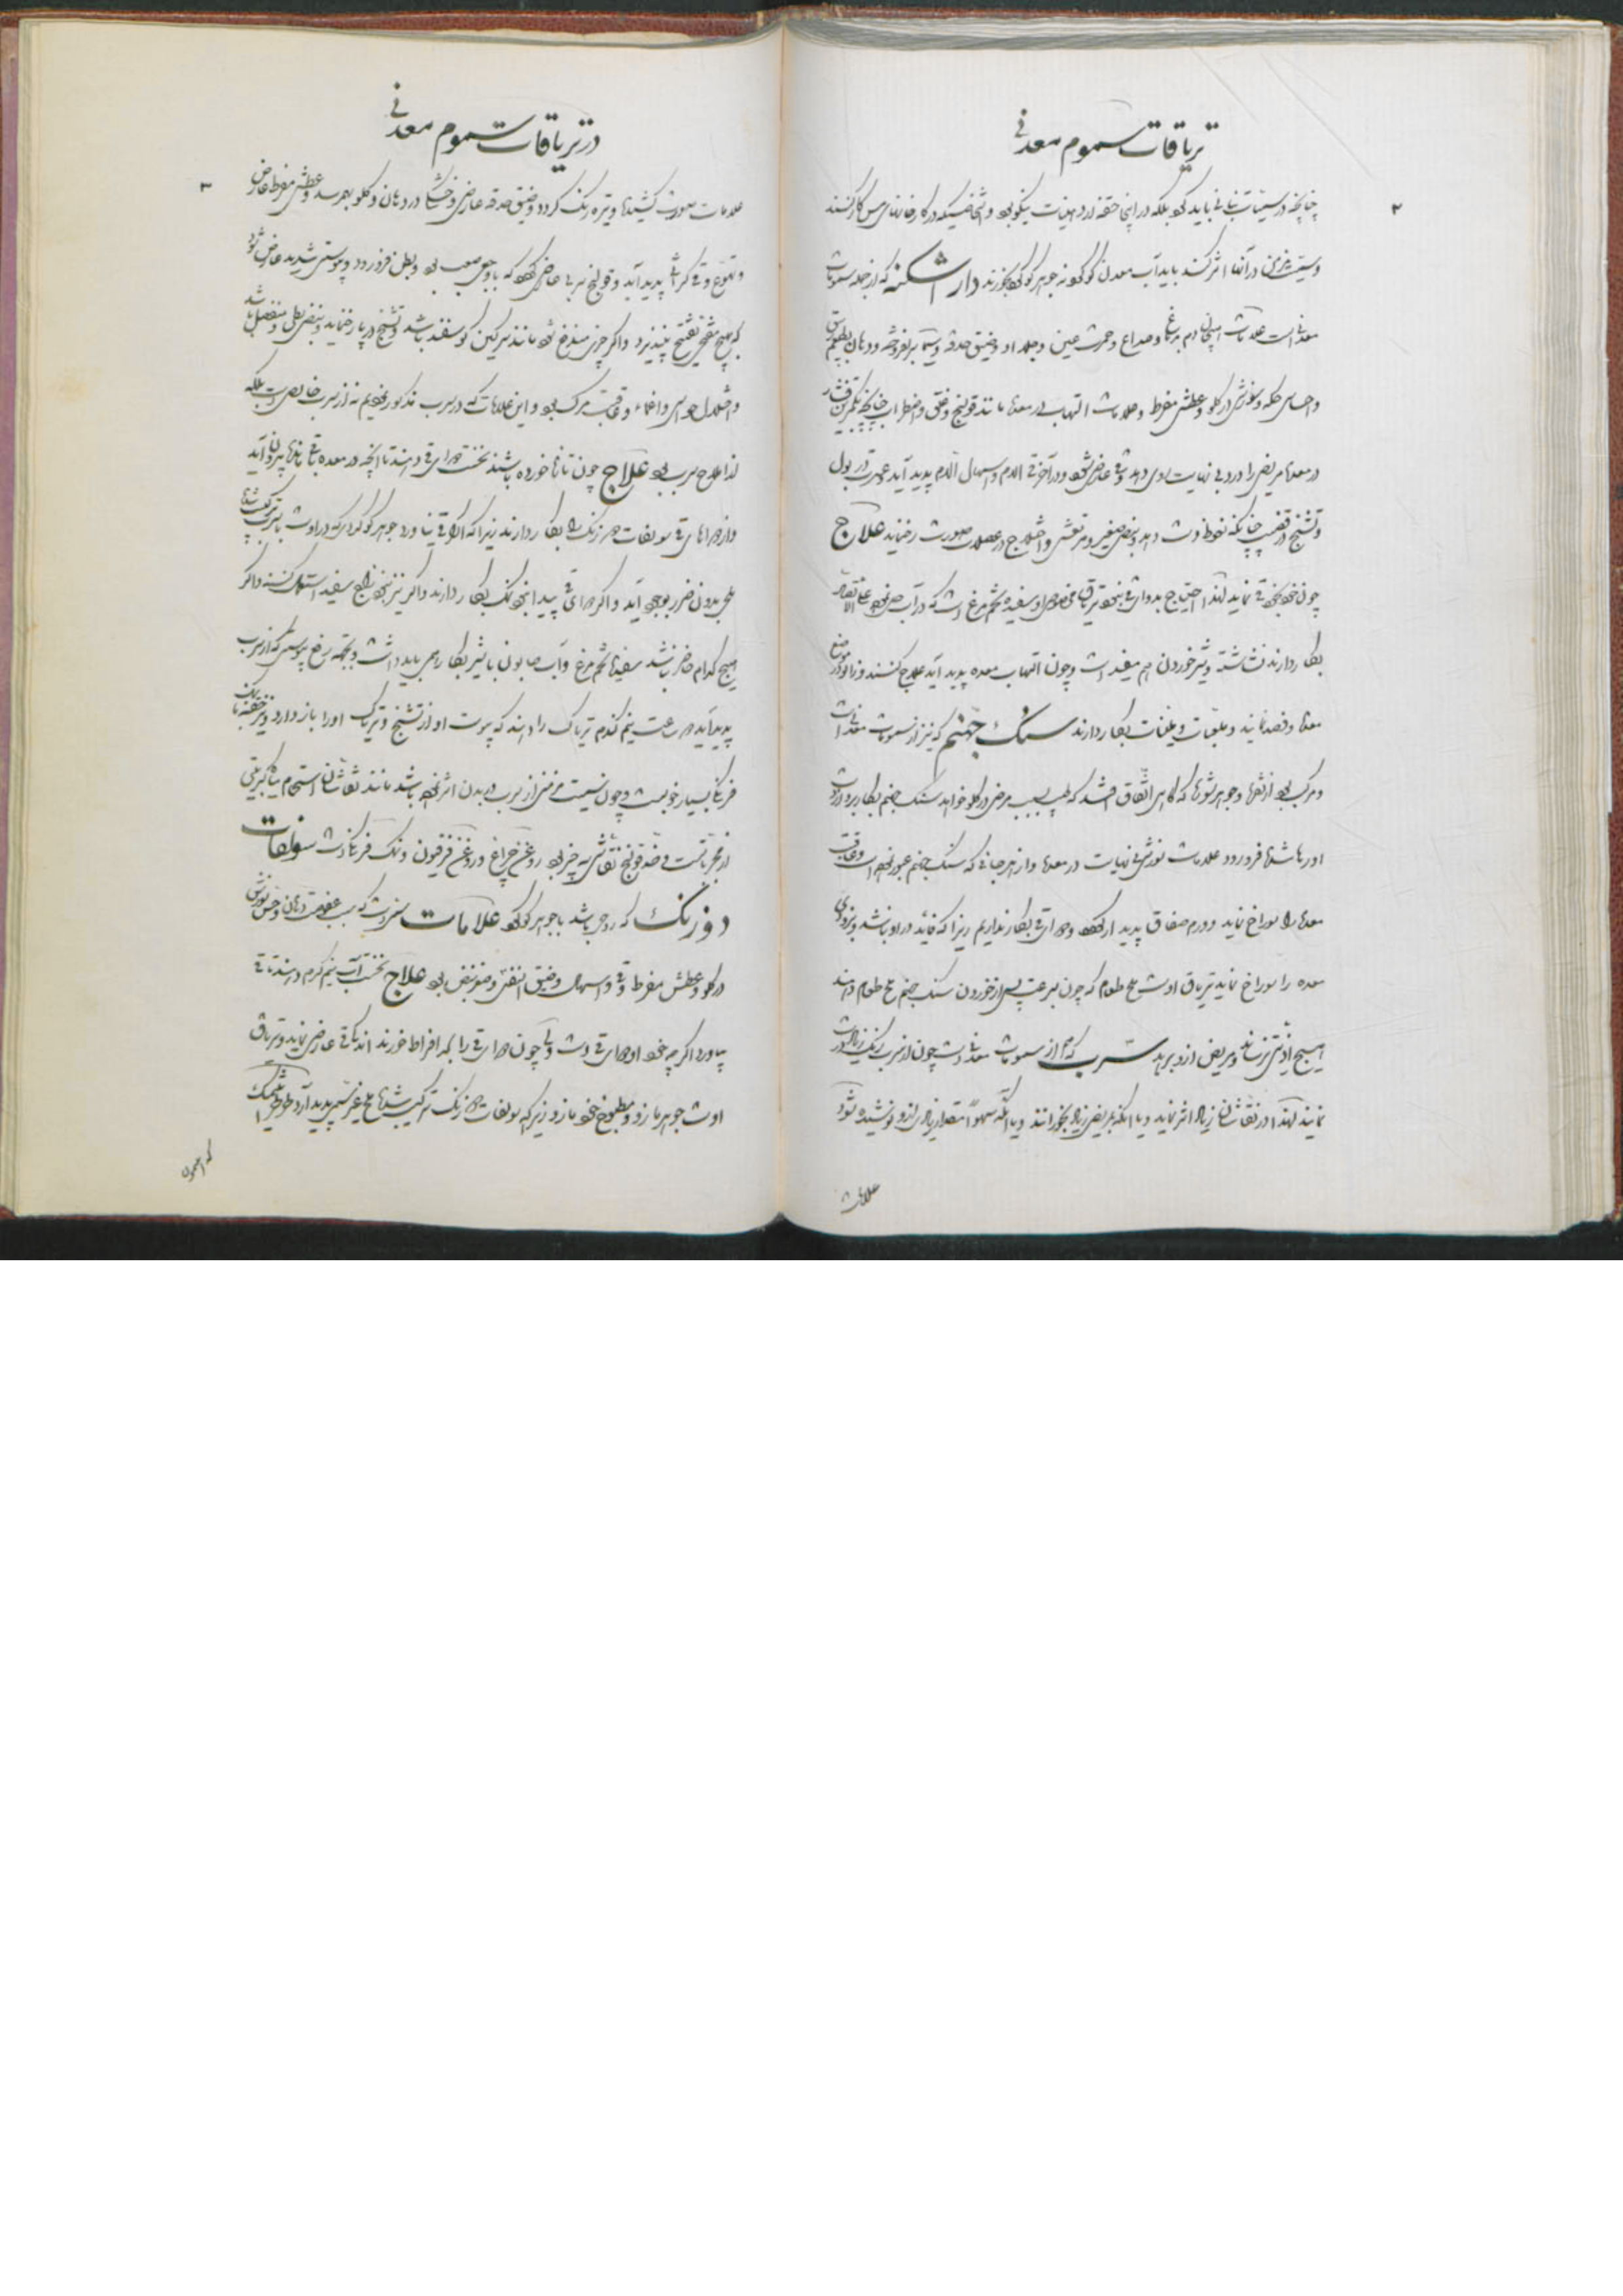 تریاقات سموم معدنی
۲
چنانچه در سمیّات نباتی باید کرد بلکه در اینجا حقنه در نهایت نیکو بود و اشخاصیکه در کارخانهای مس کار کنند
و سمیّت مزمن در آنها اثر کند باید آب معدن گوگرد و نه جوهر گوگرد بخورند داراشکنه که از جمله سمومات
معدنی است علامات و صداع و حمرت عین و جلد او و ضیق حدقه و دهان
و احساس حکه و سوزش در گلو و عطش مفرط و علامات التهاب در معدها مانند قولنج و غثی و اضطراب
در معدها مریض را درد بی نهایت روی دهد و غشی عارض شود و در آخر قی الدم و اسهال الدم پدید آید و عسرت در بول
و تشنج در قضیب چنانکه نعوظ دست دهد و نبض صغیر و مرتعش و اختلاج در عضلات صورت رخ نماید علاج
چون خود بخود قی نماید لهذا احتیاج بدوای قی نبود تریاق مخصوص او سفیده تخم مرغ است که در آب حل نموده علی الاتصال
بکار دارند نشاسته و شیر خوردن هم مفید است و چون التهاب معده پدید آید علاج کنند و زالو در موضع
معدها و فصد نمایند و ملعبات و ملینات بکار دارند سنک جهنم که نیز از سمومات معدنی است
و مرکب بود از نقره و جوهر شوره که گاهی اتّفاق افتد که طبیب بسبب مرض در گلو خواهد سنک جهنم بکار برد و از دست
او رها شده فرو رود علامات سوزش بی نهایت در معدها و از هر جائی که سنک جهنم عبور نموده است و عاقبت
معدها را سوراخ نماید و ورم صفاق پدیدار کند و دوای قی بکار نداریم زیرا که فایده در او نباشد و بزودی
معده را سوراخ نماید تریاق اوست ملح طعام که چون بسرعت پس از خوردن سنک جهنم ملح طعام دهند
هیچ اذیّتی نرساند و مریض از درد برهد سرب که هم از سمومات معدنی است چون از سرب رنک زیاد درست
نمایند لهذا در نقاشان زیاد اثر نماید و یا آنکه بمریض زیاد بخورانند و یا آنکه سهواً مقدار زیادی از او نوشیده شود
علامات
در تریاقات سموم معدنی
۳
علامات صورت کشیده و تیره رنک گردد و ضیق حدقه عارض و خشکی در دهان و گلو بهم رسد و عطش مفرط عارض
و تهوّع و قی کراثی پدید آید و قولنج سربی عارض گردد که با وجع صعب بود و بطن فرو رود و یبوستی شدید عارض شود
که هیچ مفتّحی تفتیح نپذیرد و اگر چیزی مندفع شود مانند سرگین گوسفند باشد و تشنج در پا رخ نماید و نبض بطی و منفصل باشد
و اختلال حواس و اغماء و عاقبت مرگ بود و این علامات که در سرب مذکور نمودیم نه از سرب خالص است بلکه
از املاح سرب بود علاج چون تازه خورده باشند نخست دوای قی دهند تا آنچه در معده باقی مانده بیرون آید
و از دواهای قی سولفات دو زنک را بکار دارند زیرا که اگر قی نیاورد جوهر گوگردی که در اوست با سرب ترکیب شده
ملحی بدون ضرر بوجود آید و اگر دوای قی پیدا نبود نمک بکار دارند و اگر نیز نبود زاج سفید استعمال کنند و اگر
هیچ کدام حاضر نباشد سفیده تخم مرغ و آب صابون با شیر بکار همی باید داشت و بجهة رفع یبوستی که از سرب
پدید آید در ساعت نیم گندم تریاک را دهند که یبوست او از تشنج و تریاک او را باز دارد و نیز حقنه با نمک
فرنگی بسیار خوبست و چون سمیّت مزمنی از سرب در بدن اثر نموده باشد مانند نقاشان استحمام میاه کبریتی
از مجرباتست و ضد قولنج نقاشی سه چیز بود روغن چراغ و روغن فرفیون و نمک فرنگی است سولفات
دو زنک که روی باشد با جوهر گوگرد علامات سمّ اوست که سبب عفوصت دهان و حس سوزش
در گلو و عطش مفرط و قی و اسهال و ضیق النفس و صغر نبض بود علاج نخست آب نیم گرم دهند تا قی
بیاورد اگر چه خود او دوای قی است ولی چون دوای قی را به افراط خورند اندکی قی عارض نماید و تریاق
اوست جوهر مازو و مطبوخ خود مازو زیرا که سولفات دو زنک ترکیب شده ملح غیر سمّ پدید آرد
که اعمون